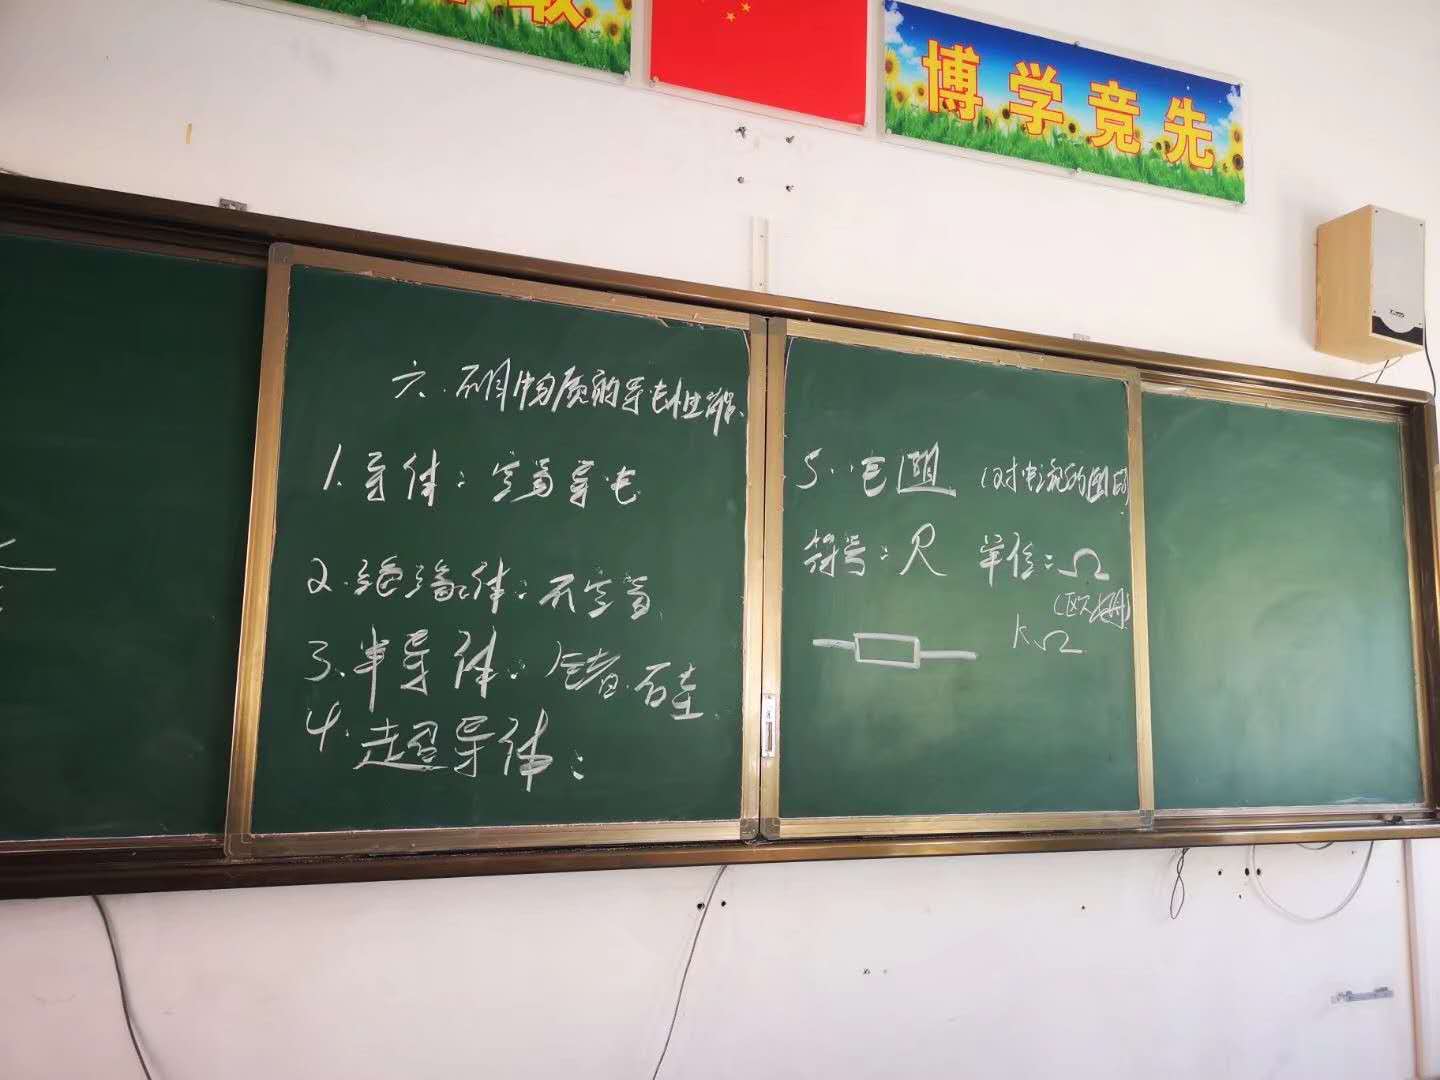 博学竞先
六、不同物质的导电性能
1.导体：容易导电
2.绝缘体：不容易
3.半导体：锗、硅
4.超导体：
5.电阻（对电流的阻碍
符号：R 单位：Ω
（欧姆）
KΩ